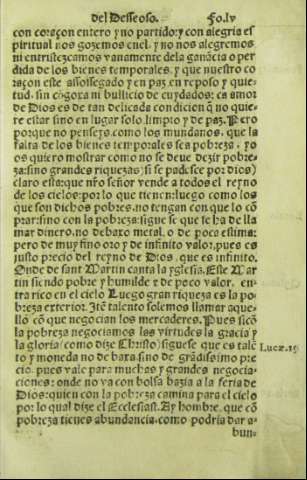 del Desseoso.    Fo.lv
con coraçon entero y no partido: y con alegria es
piritual nos gozemos enel, y no nos alegremos
ni entristezcamos vanamente dela ganãcia o per
dida de los bienes temporales, y que nuestro co
raçon este assossegado y en paz en reposo y quie-
tud, sin cõgoxa ni bullicio de cuydados: ca amor
de Dios es de tan delicada condicion q̃ no quie-
re estar sino en lugar solo, limpio y de paz. Pero
porque no penseys como los mundanos, que la
falta de los bienes temporales sea pobreza, yo
os quiero mostrar como no se deue dezir pobre-
za: sino grandes riquezas: si se padesce por dios)
claro esta: que nr̃o señor vende a todos el reyno
de los cielos: por lo que tienen: luego como los
que son dichos pobres, no tengan con que lo cõ
prar: sino con la pobreza: sigue se que se ha de lla
mar dinero, no de baxo metal, o de poca estima:
pero de muy fino oro y de infinito valor, pues es
justo precio del reyno de Dios, que es infinito.
Onde de sant Martin canta la yglesia. Este Mar
tin siendo pobre y humilde y de poco valor, en-
tra rico en el cielo Luego gran riqueza es la po-
breza exterior. Itẽ talento solemos llamar aque-
llo cõ que negocian los mercaderes. Pues si cõ
la pobreza negociamos las virtudes la gracia y
la gloria (como dize Christo) siguese que es talẽ
to y moneda no de baxa, sino de grãdissimo pre
cio, pues vale para muchas y grandes negocia-
ciones: onde no va con bolsa bazia a la feria de
Dios: quien con la pobreza camina para el cielo
por lo qual dize el Ecclesiast. Ay hombre, que cõ
pobreza tienes abundancia: como podria dar a
bun-
Luce.19